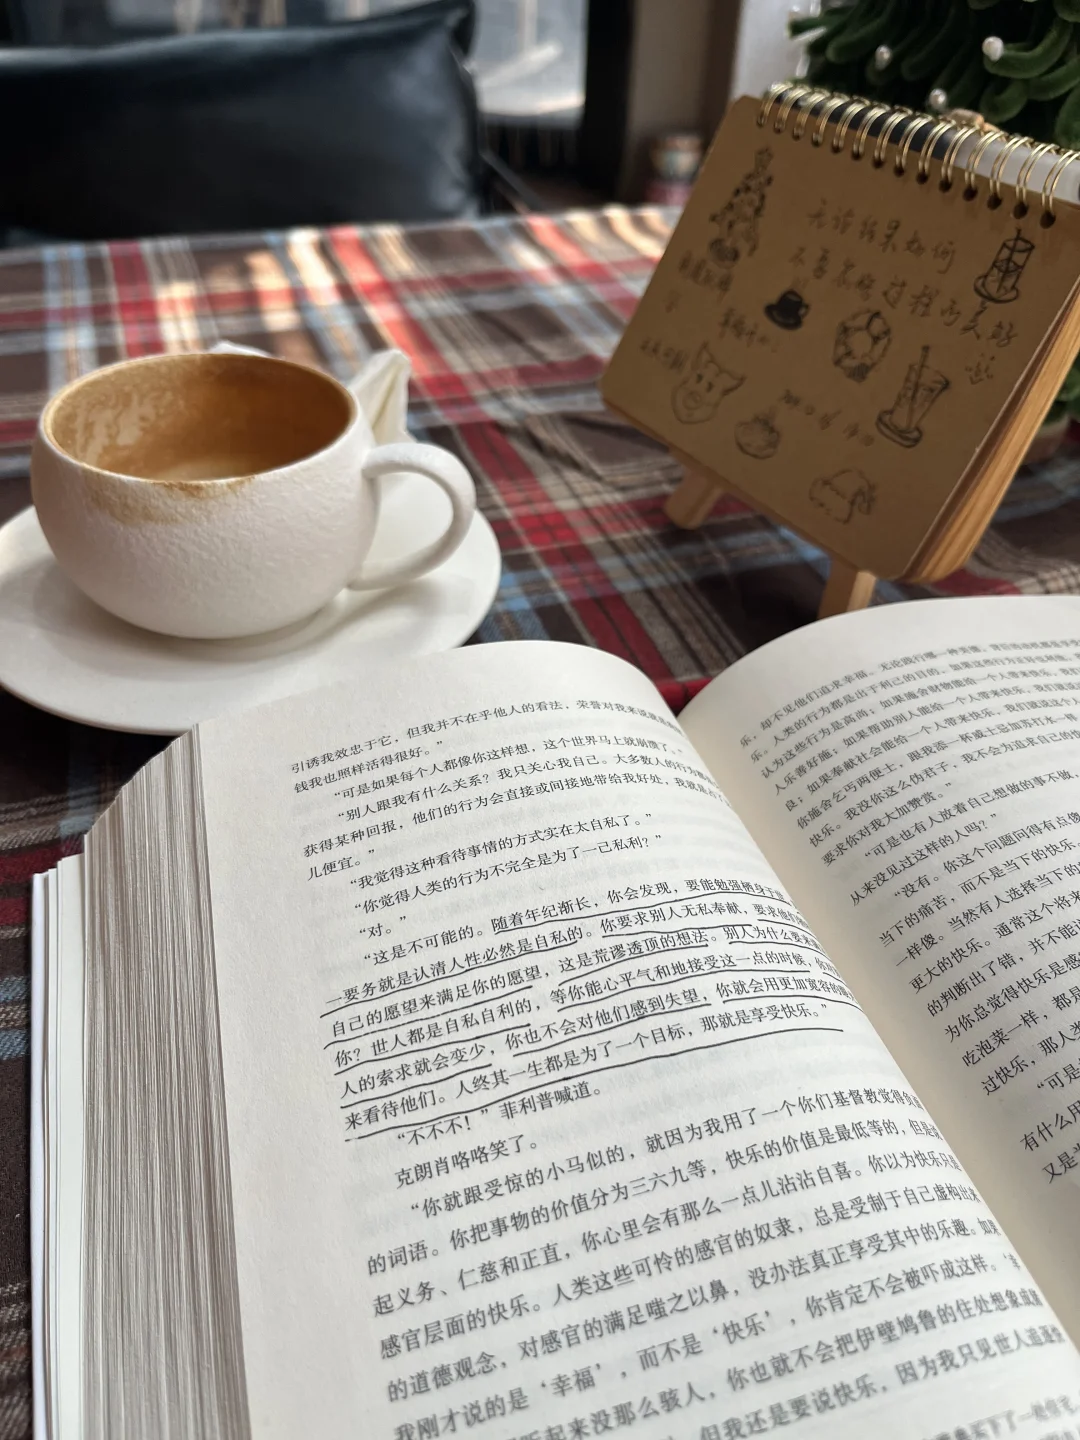 无论结果如何
不吾怎样过程永美好
引诱我效忠于它，但我并不在乎他人的看法，荣誉对我来说就是
钱我也照样活得很好。”
“可是如果每个人都像你这样想，这个世界马上就崩溃了。”
“别人跟我有什么关系？我只关心我自己。大多数人的行为都
获得某种回报，他们的行为会直接或间接地带给我好处，我就
儿便宜。”
“我觉得这种看待事情的方式实在太自私了。”
“你觉得人类的行为不完全是为了一己私利？”
“对。”
“这是不可能的。随着年纪渐长，你会发现，要能勉强栖身于
一要务就是认清人性必然是自私的。你要求别人无私奉献，要求他们
自己的愿望来满足你的愿望，这是荒谬透顶的想法。别人为什么要
你？世人都是自私自利的，等你能心平气和地接受这一点的时候，你
人的索求就会变少，你也不会对他们感到失望，你就会用更加宽容的
来看待他们。人终其一生都是为了一个目标，那就是享受快乐。”
“不不不！”菲利普喊道。
克朗肖咯咯笑了。
“你就跟受惊的小马似的，就因为我用了一个你们基督教觉得
的词语。你把事物的价值分为三六九等，快乐的价值是最低等的，但是
起义务、仁慈和正直，你心里会有那么一点儿沾沾自喜。你以为快乐只是
感官层面的快乐。人类这些可怜的感官的奴隶，总是受制于自己虚构出来
的道德观念，对感官的满足嗤之以鼻，没办法真正享受其中的乐趣。如果
我刚才说的是‘幸福’，而不是‘快乐’，你肯定不会被吓成这样。‘幸
听起来没那么骇人，你也就不会把伊壁鸠鲁的住处想象成
但我还是要说快乐，因为我只见世人追逐快
乐，却不见他们追求幸福。无论践行哪一种美德，
乐。人类的行为都是出于利己的目的。如果这些行为
认为这些行为是高尚；如果施舍财物能给一个人带来快乐，
人乐善好施；如果帮助别人能给一个人带来快乐，我们就说这个人
良；如果奉献社会能给一个人带来快乐，
你施舍乞丐两便士，跟我添一杯威士忌加苏打水一样，
快乐。我没你这么伪君子，我不会为追求自己的
要求你对我大加赞赏。”
“可是也有人放着自己想做的事不做，
从来没见过这样的人吗？”
“没有。你这个问题问得有点
当下的痛苦，而不是当下的快乐。
一样傻。当然有人选择当下的
更大的快乐。通常这个将来
的判断出了错，并不能
为你总觉得快乐是感
吃泡菜一样，都是
过快乐，那人类
“可是
有什么用
又是